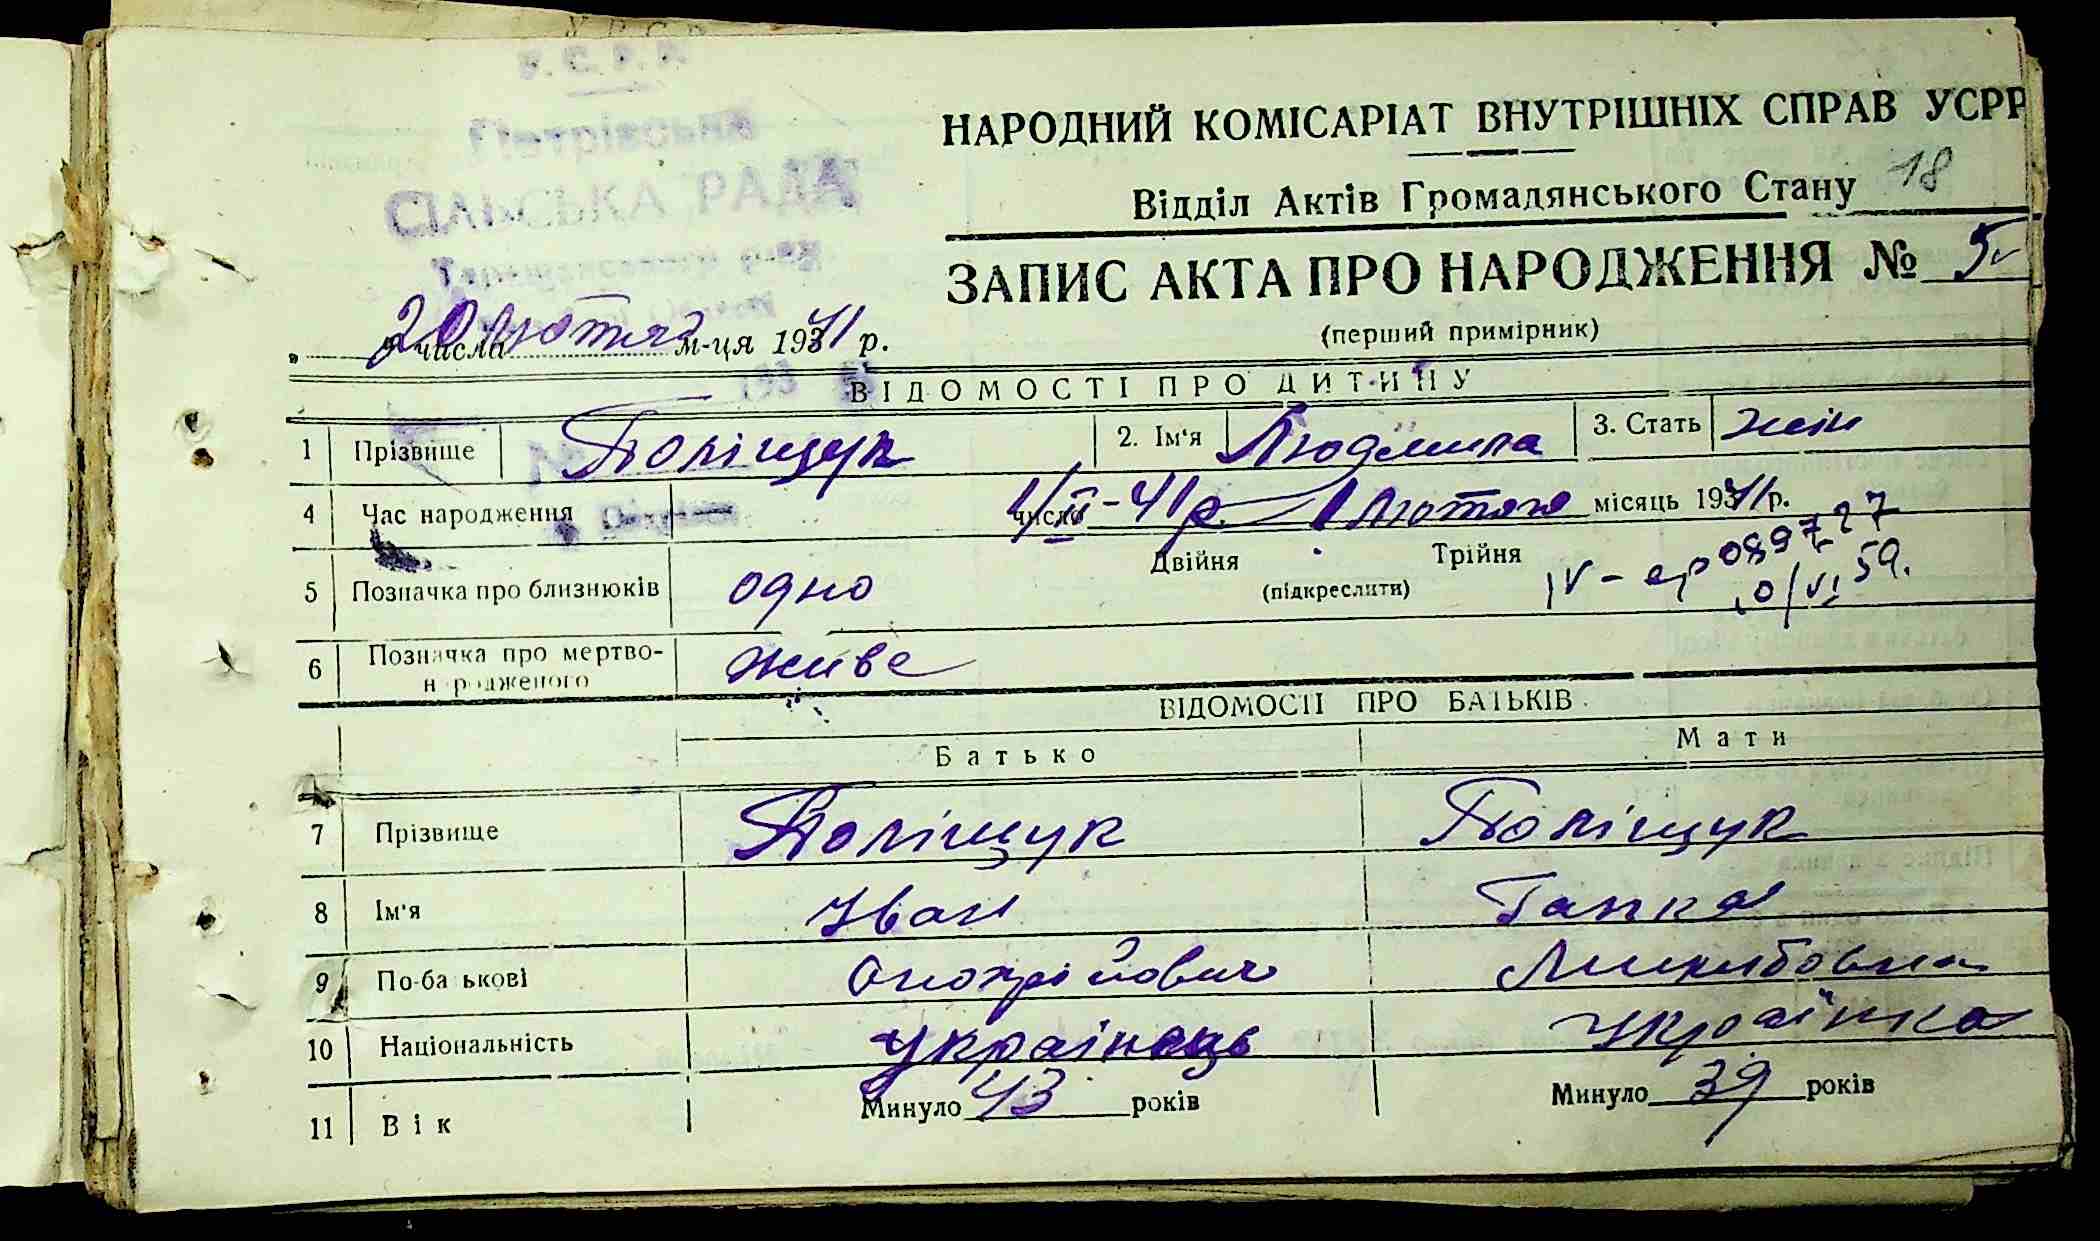 У. С. Р. Р.
Петрівська
СІЛЬСЬКА РАДА
Таращанського р-ну
НАРОДНИЙ КОМІСАРІАТ ВНУТРІШНІХ СПРАВ УСРР
Відділ Актів Громадянського Стану 18
ЗАПИС АКТА ПРО НАРОДЖЕННЯ № 5
(перший примірник)
„ 20 " числа лютяз м-ця 1941 р.
ВІДОМОСТІ ПРО ДИТИНУ
1 Прізвище Поліщук 2. Ім'я Людмила 3. Стать жін
4 Час народження 1/ІІ-41р. число 1 лютого місяць 1941 р.
5 Позначка про близнюків одно Двійня Трійня
(підкреслити)
IV-ер 089727
10/VI 59.
6 Позначка про мертво-
н родженого живе
ВІДОМОСТІ ПРО БАТЬКІВ
Батько Мати
7 Прізвище Поліщук Поліщук
8 Ім'я Іван Гапка
9 По-ба ькові Онопрійович
10 Національність українець українка
11 Вік Минуло 43 років Минуло 39 років